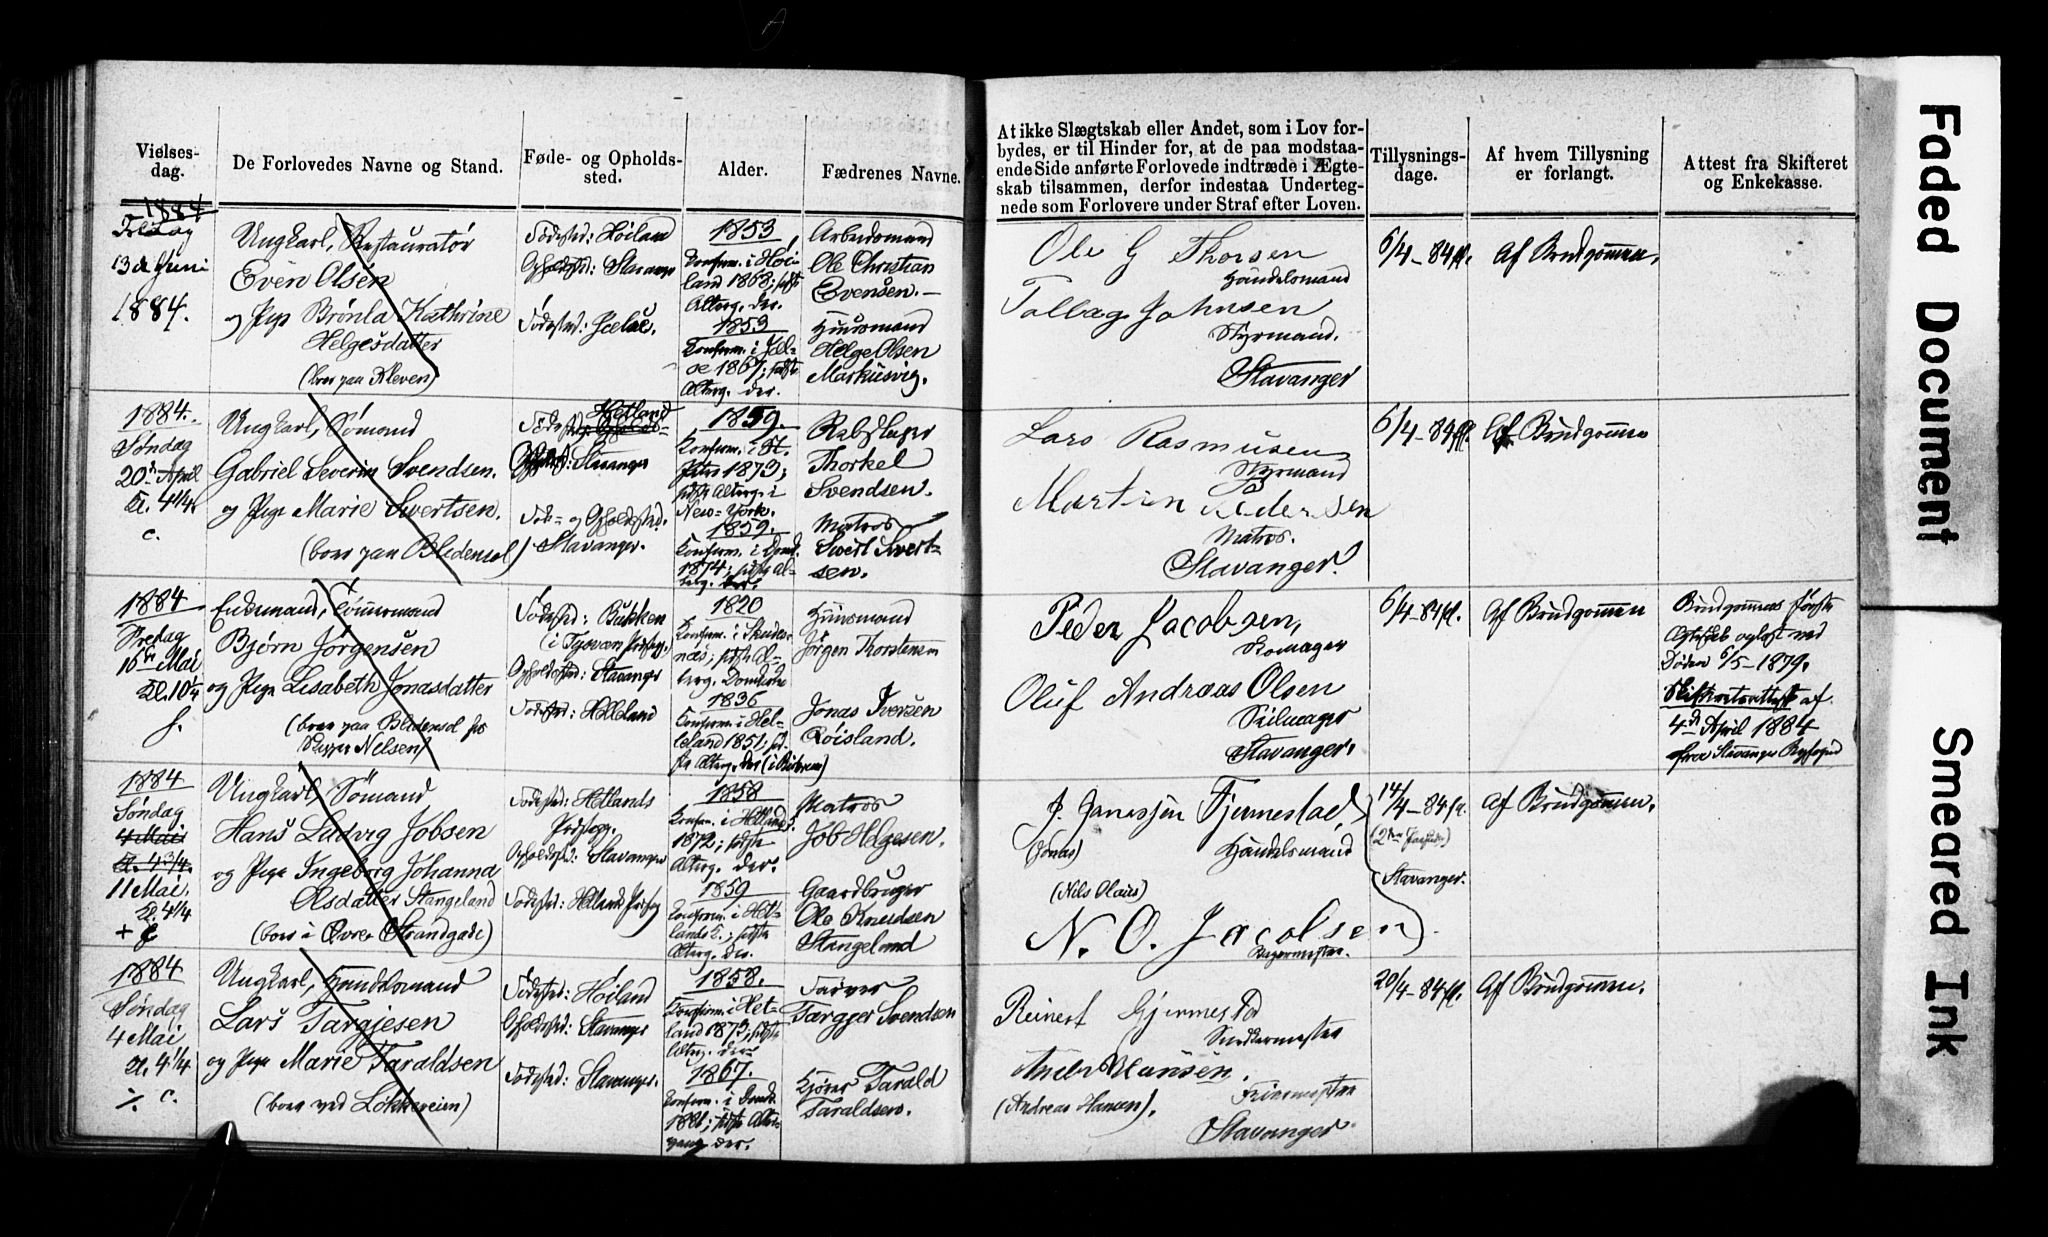 Vielses-
dag.
De Forlovedes Navne og Stand.
Føde- og Opholds-
sted.
Alder.
Fædrenes Navne.
At ikke Slægtskab eller Andet, som i Lov for-
bydes, er til Hinder for, at de paa modstaa-
ende Side anførte Forlovede indtræde i Ægte-
skab tilsammen, derfor indestaa Underteg-
nede som Forlovere under Straf efter Loven.
Tillysnings-
dage.
Af hvem Tillysning
er forlangt.
Attest fra Skifteret
og Enkekasse.
1884
Fredag
13de Juni
1884.
Ungkarl, Restauratør
Even Olsen
og Pige Brönla Kathrine
Helgesdatter
(bor paa Kleven)
Födested: Höiland
Opholdssted: Stavanger
Födested: Joelse.
1853
Konfirm. i Höi-
land 1868; sidste
Alterg. der.
1853
Konfirm. i Jöl-
se 1867; sidste
Alterg. der.
Arbeidsmand
Ole Christian
Evensen.
Huusmand
Helge Olsen
Markusvig.
Ole G Thorsen
Handelsmand
Tollag Johnsen
Styrmand.
Stavanger
6/4-84
Af Brudgommen.
1884.
Søndag
20de April
Kl. 4 1/4
c.
Ungkarl, Sømand
Gabriel Severin Svendsen.
og Pige Marie Sivertsen.
(bor paa Bledensøl)
Hetland
Födested:
Opholdssted: Stavanger
Föde- og Opholdssted:
Stavanger.
1859.
Konfirm. i St.
Petri 1873;
sidste Alterg. i
New-York.
1859.
Konfirm. i Domk.
1874; sidste Al-
terg. der.
Rebslager
Thorkel
Svendsen.
Matros
Sivert Sivert-
sen.
Lars Rasmusen
Styrmand
Martin Pedersen
Matros.
Stavanger.
6/4-84
Af Brudgommen
1884
Fredag
16de Mai
Kl. 10 1/2
f.
Enkemand, Tömmermand
Bjørn Jørgensen
og Pige Lisabeth Jonasdatter
(bor paa Bledensøl hos
Skipper Nelsen)
Födested: Bukken
(i Tysvær Prstgj.)
Opholdssted: Stavanger
Födested: Helleland
1820
Konfirm. i Skudes-
næs; sidste Al-
terg. Domkirke
1836
Konfirm. i Hel-
leland 1851; sid-
ste Alterg. der
Huusmand
Jörgen Thorstensen
Jonas Iversen
Röisland.
Peder Jacobsen,
Skomager
Oluf Andreas Olsen
Seilmager
Stavanger.
6/4-84
Af Brudgommen
Brudgommens første
Ægteskab opløst ved
Døden 6/5-1879.
Skifteretsattest af
4de April 1884
fra Stavanger Byfoged
1884
Søndag
4 Mai
Kl. 4 3/4.
11 Mai.
Kl. 4 1/4
+ c
Ungkarl, Sömand
Hans Ludvig Jobsen
og Pige Ingeborg Johanna
Olsdatter Stangeland
(bor i Øvre Strandgade)
Födested: Hetlands
Prstgj.
Opholdssted: Stavanger
Födested: Hetland Prstgj
1858
Konfirm. i Hetland
1872; sidste
Alterg. der.
1859
Konfirm. i Het-
lands K.; sidste
Alterg. der.
Matros
Job Helgesen.
Gaardbruger
Ole Knudsen
Stangeland
J. Janessen Tjemestad,
(Jonas)
Handelsmand
(Nils Olaus)
N. O. Jacobsen
Bagermester.
14/4-84
Stavanger.
Af Brudgommen.
1884
Søndag
4 Mai
Kl. 4 1/4
÷ c.
Ungkarl, Handelsmand
Lars Targjesen
og Pige Marie Taraldsen
(bor ved Løkkeveien)
Födested: Höiland
Opholdssted: Stavanger
Födested: Stavanger.
1858.
Konfirm. i Het-
land 1873; sidste
Alterg. der
1867.
Konfirm. i Domk.
1881; sidste Alter-
gang der.
Farver
Targjer Svendsen
Kjører Tarald
Taraldsen.
Reinert Gjermestad
Snedkermester
Andr Hansen.
(Andreas Hansen).
Stavanger
20/4-84
Af Brudgommen.
Faded Document
Smeared Ink